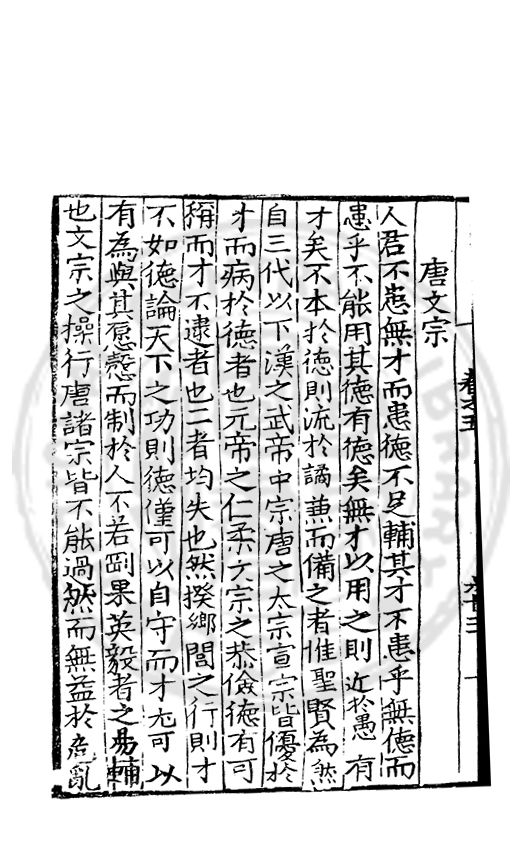 唐文宗
人君不患無才而患德不足輔其才不患乎無德而
患乎不能用其德有德矣無才以用之則近於愚有
才矣不本於德則流於譎兼而備之者惟聖賢為然
自三代以下漢之武帝中宗唐之太宗宣宗皆優於
才而病於德者也元帝之仁柔文宗之恭儉德有可
稱而才不逮者也二者均失也然揆鄉閭之行則才
不如德論天下之功則德僅可以自守而才尤可以
有為與其愿慤而制於人不若剛果英毅者之易輔
也文宗之操行唐諸宗皆不能過然而無益於危亂